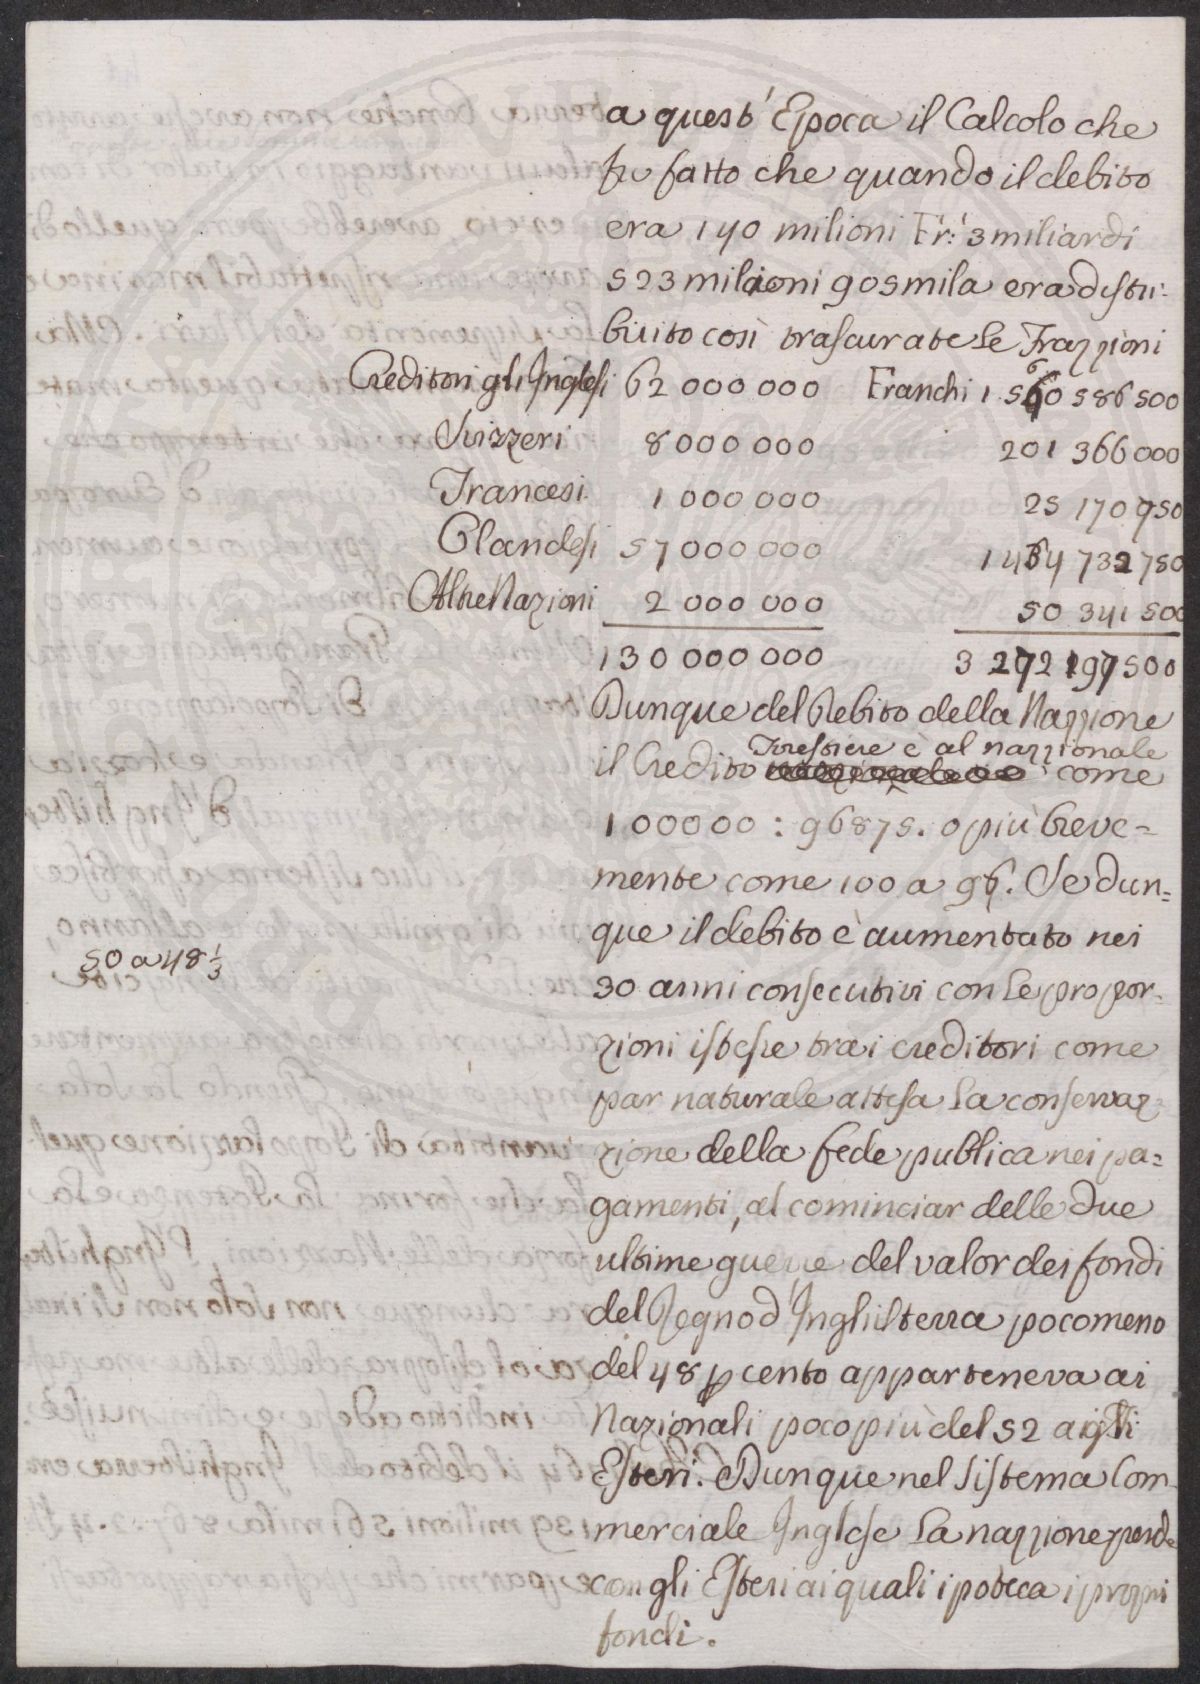 a quest' Epoca il Calcolo che
fu fatto che quando il debito
era 140 milioni Fr: 3 miliardi
523 milioni 905 mila era distri-
buito così trascurate le Frazzioni
Creditori gli Inglesi 62 000 000 Franchi 1 560 586 500
Svizzeri 8 000 000 201 366 000
Francesi 1 000 000 25 170 750
Olandesi 57 000 000 1 434 732 750
Altre Nazioni 2 000 000 50 341 500
130 000 000 3 272 197 500
Dunque del Debito della Nazzione
Forestiere è al nazzionale
il Credito come
100000 : 96875. o più breve=
mente come 100 a 96. Se dun=
que il debito è aumentato nei
50 a 48 1/3
30 anni consecutivi con le propor-
zioni istesse tra i creditori come
par naturale attesa la conservaz-
zione della fede publica nei pa=
gamenti, al cominciar delle due
ultime guerre del valor dei fondi
del Regno d'Inghilterra poco meno
del 48 p cento apparteneva ai
Nazionali poco più del 52 agli
Esteri. Dunque nel sistema Com-
merciale Inglese la nazzione perde
con gli Esteri ai quali ipoteca i propri
fondi.